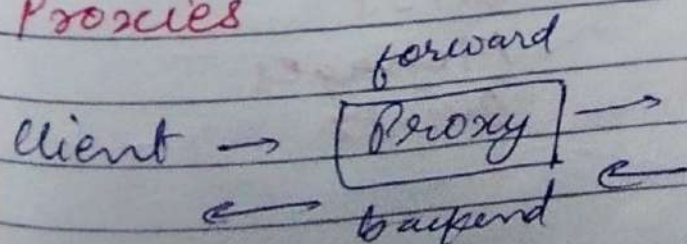 Proxies
forward
Client → [Proxy] →
← backend ←